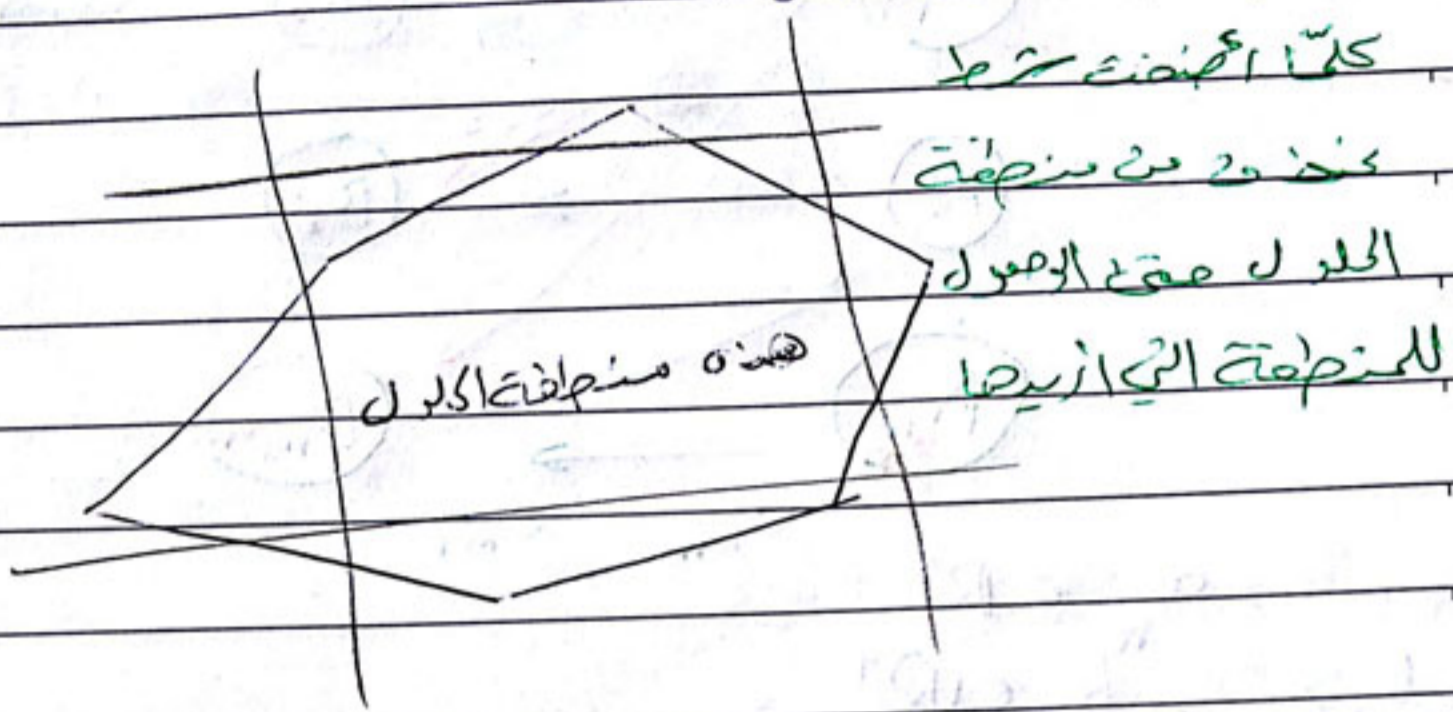 كلّما أضفت شرط
نحذف من منطقة
الحلول حتى الوصول
للمنطقة التي اريدها
هذه منطقة الحلول